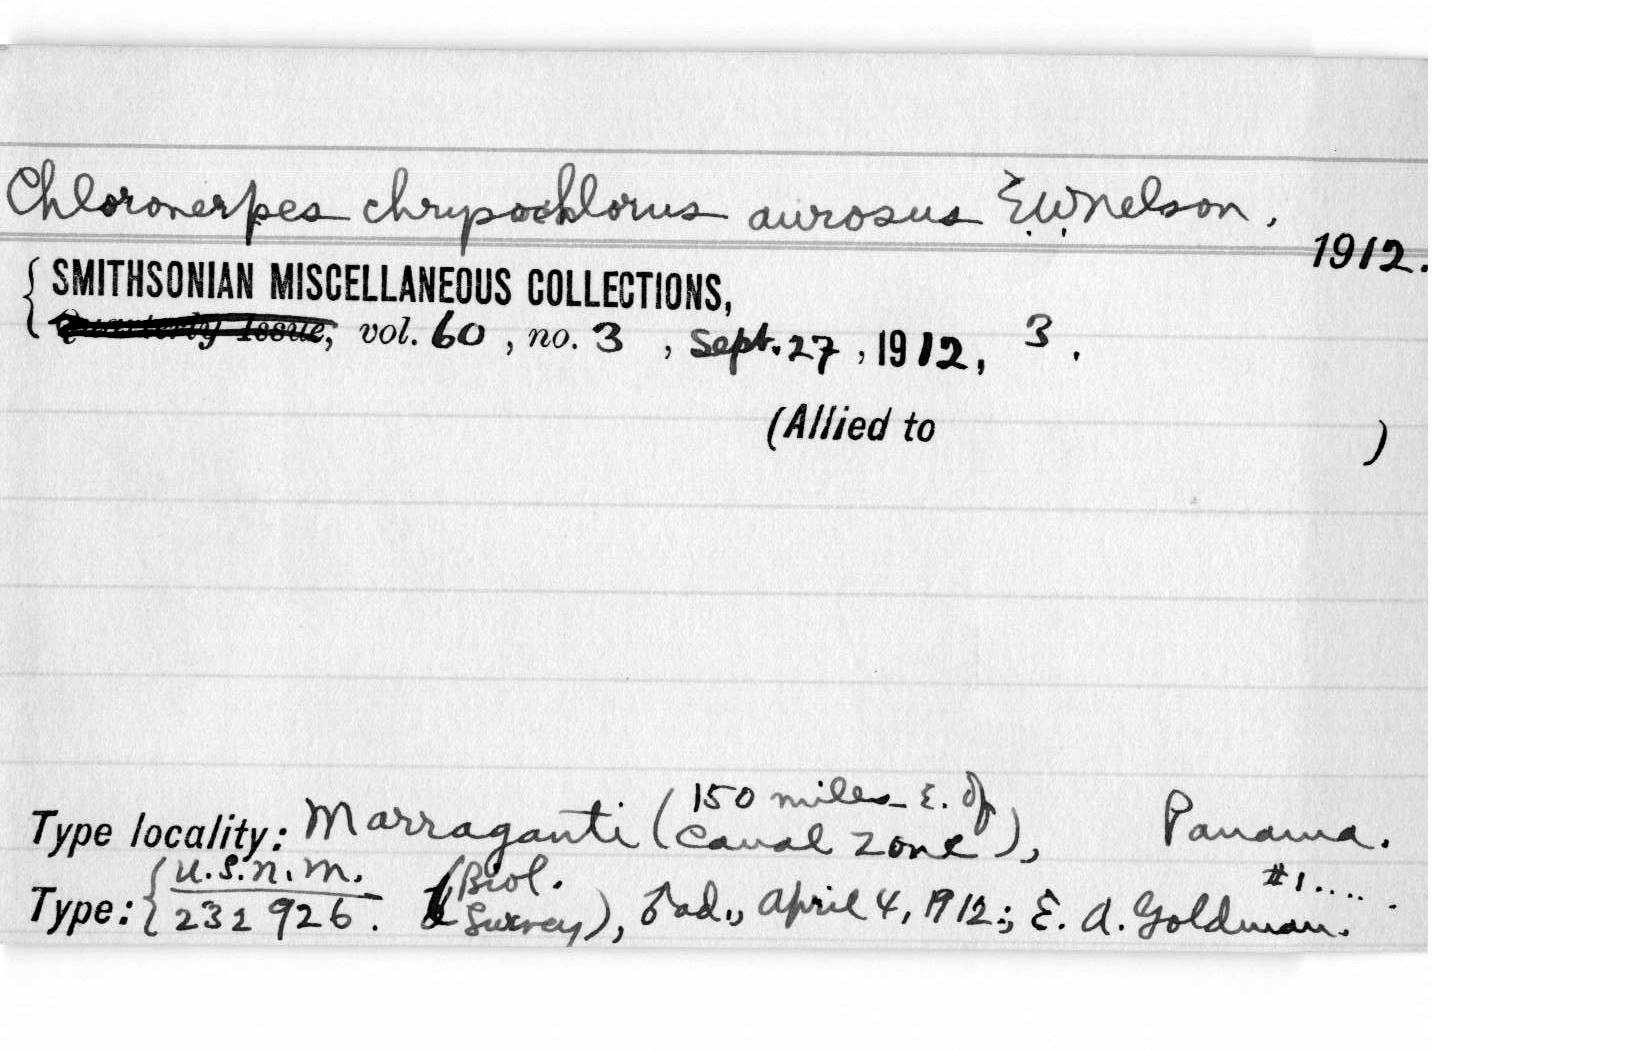 Chloronerpes chrysochlorus aurosus E.W.Nelson,
1912.
SMITHSONIAN MISCELLANEOUS COLLECTIONS,
Quarterly Issue, vol. 60, no. 3, Sept. 27, 1912, 3.
(Allied to )
Type locality: Marraganti (150 miles E. of Canal Zone), Panama.
Type: U.S.N.M. 232926. (Biol. Survey), ♂ ad., April 4, 1912; E. A. Goldman. #1.....